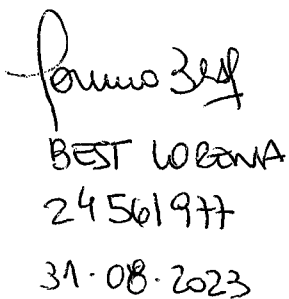 BEST LORENA
24561977
31.08.2023